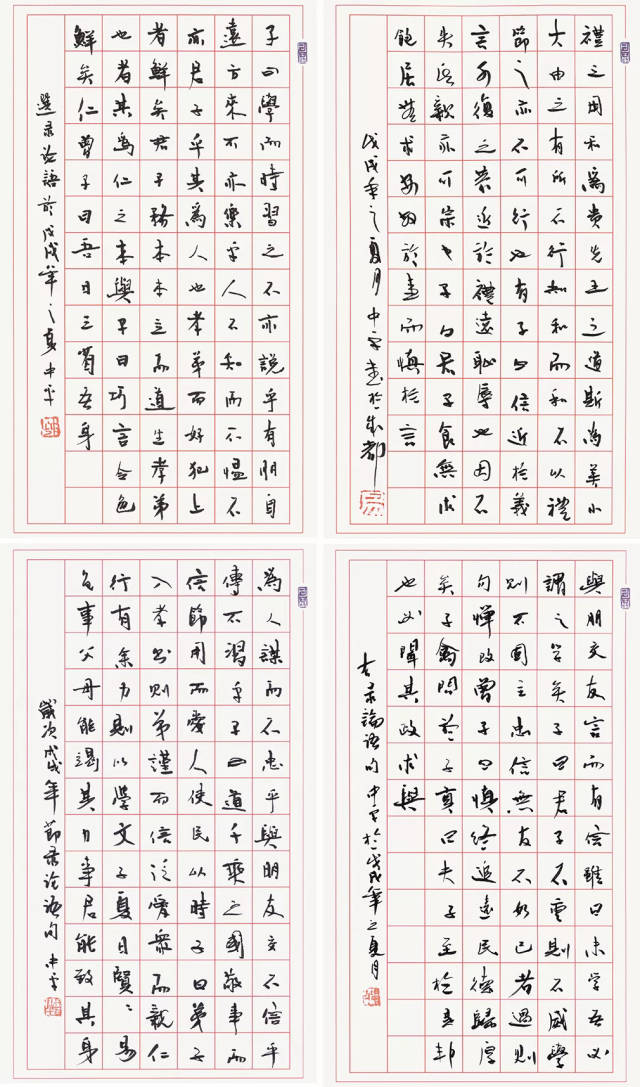 子曰學而時習之不亦說乎有朋自
遠方來不亦樂乎人不知而不慍不
亦君子乎其為人也孝弟而好犯上
者鮮矣君子務本本立而道生孝弟
也者其為仁之本與子曰巧言令色
鮮矣仁曾子曰吾日三省吾身
選录论語於戊戌年之夏中平
為人謀而不忠乎與朋友交不信乎
傳不習乎子曰道千乘之國敬事而
信節用而愛人使民以時子曰弟子
入孝出則弟謹而信泛愛衆而親仁
行有余力則以學文子夏曰賢々易
色事父母能竭其力事君能致其身
歲次戊戌年節录论语句中平
與朋交友言而有信雖曰未学吾必
謂之学矣子曰君子不重則不威學
則不固主忠信無友不如己者過則
句憚改曾子曰慎終追遠民德歸厚
矣子禽問於子貢曰夫子至於是邦
也必聞其政求與
右录論语句中平於戊戌年之夏月
禮之用和為貴先王之道斯為美小
大由之有所不行知和而和不以禮
節之亦不可行也有子曰信近於義
言可復之恭近於禮遠恥辱也因不
失親亦可宗也子曰君子食無求
飽居無求安敏於事而慎於言
戊戌年之夏月中平書於成都